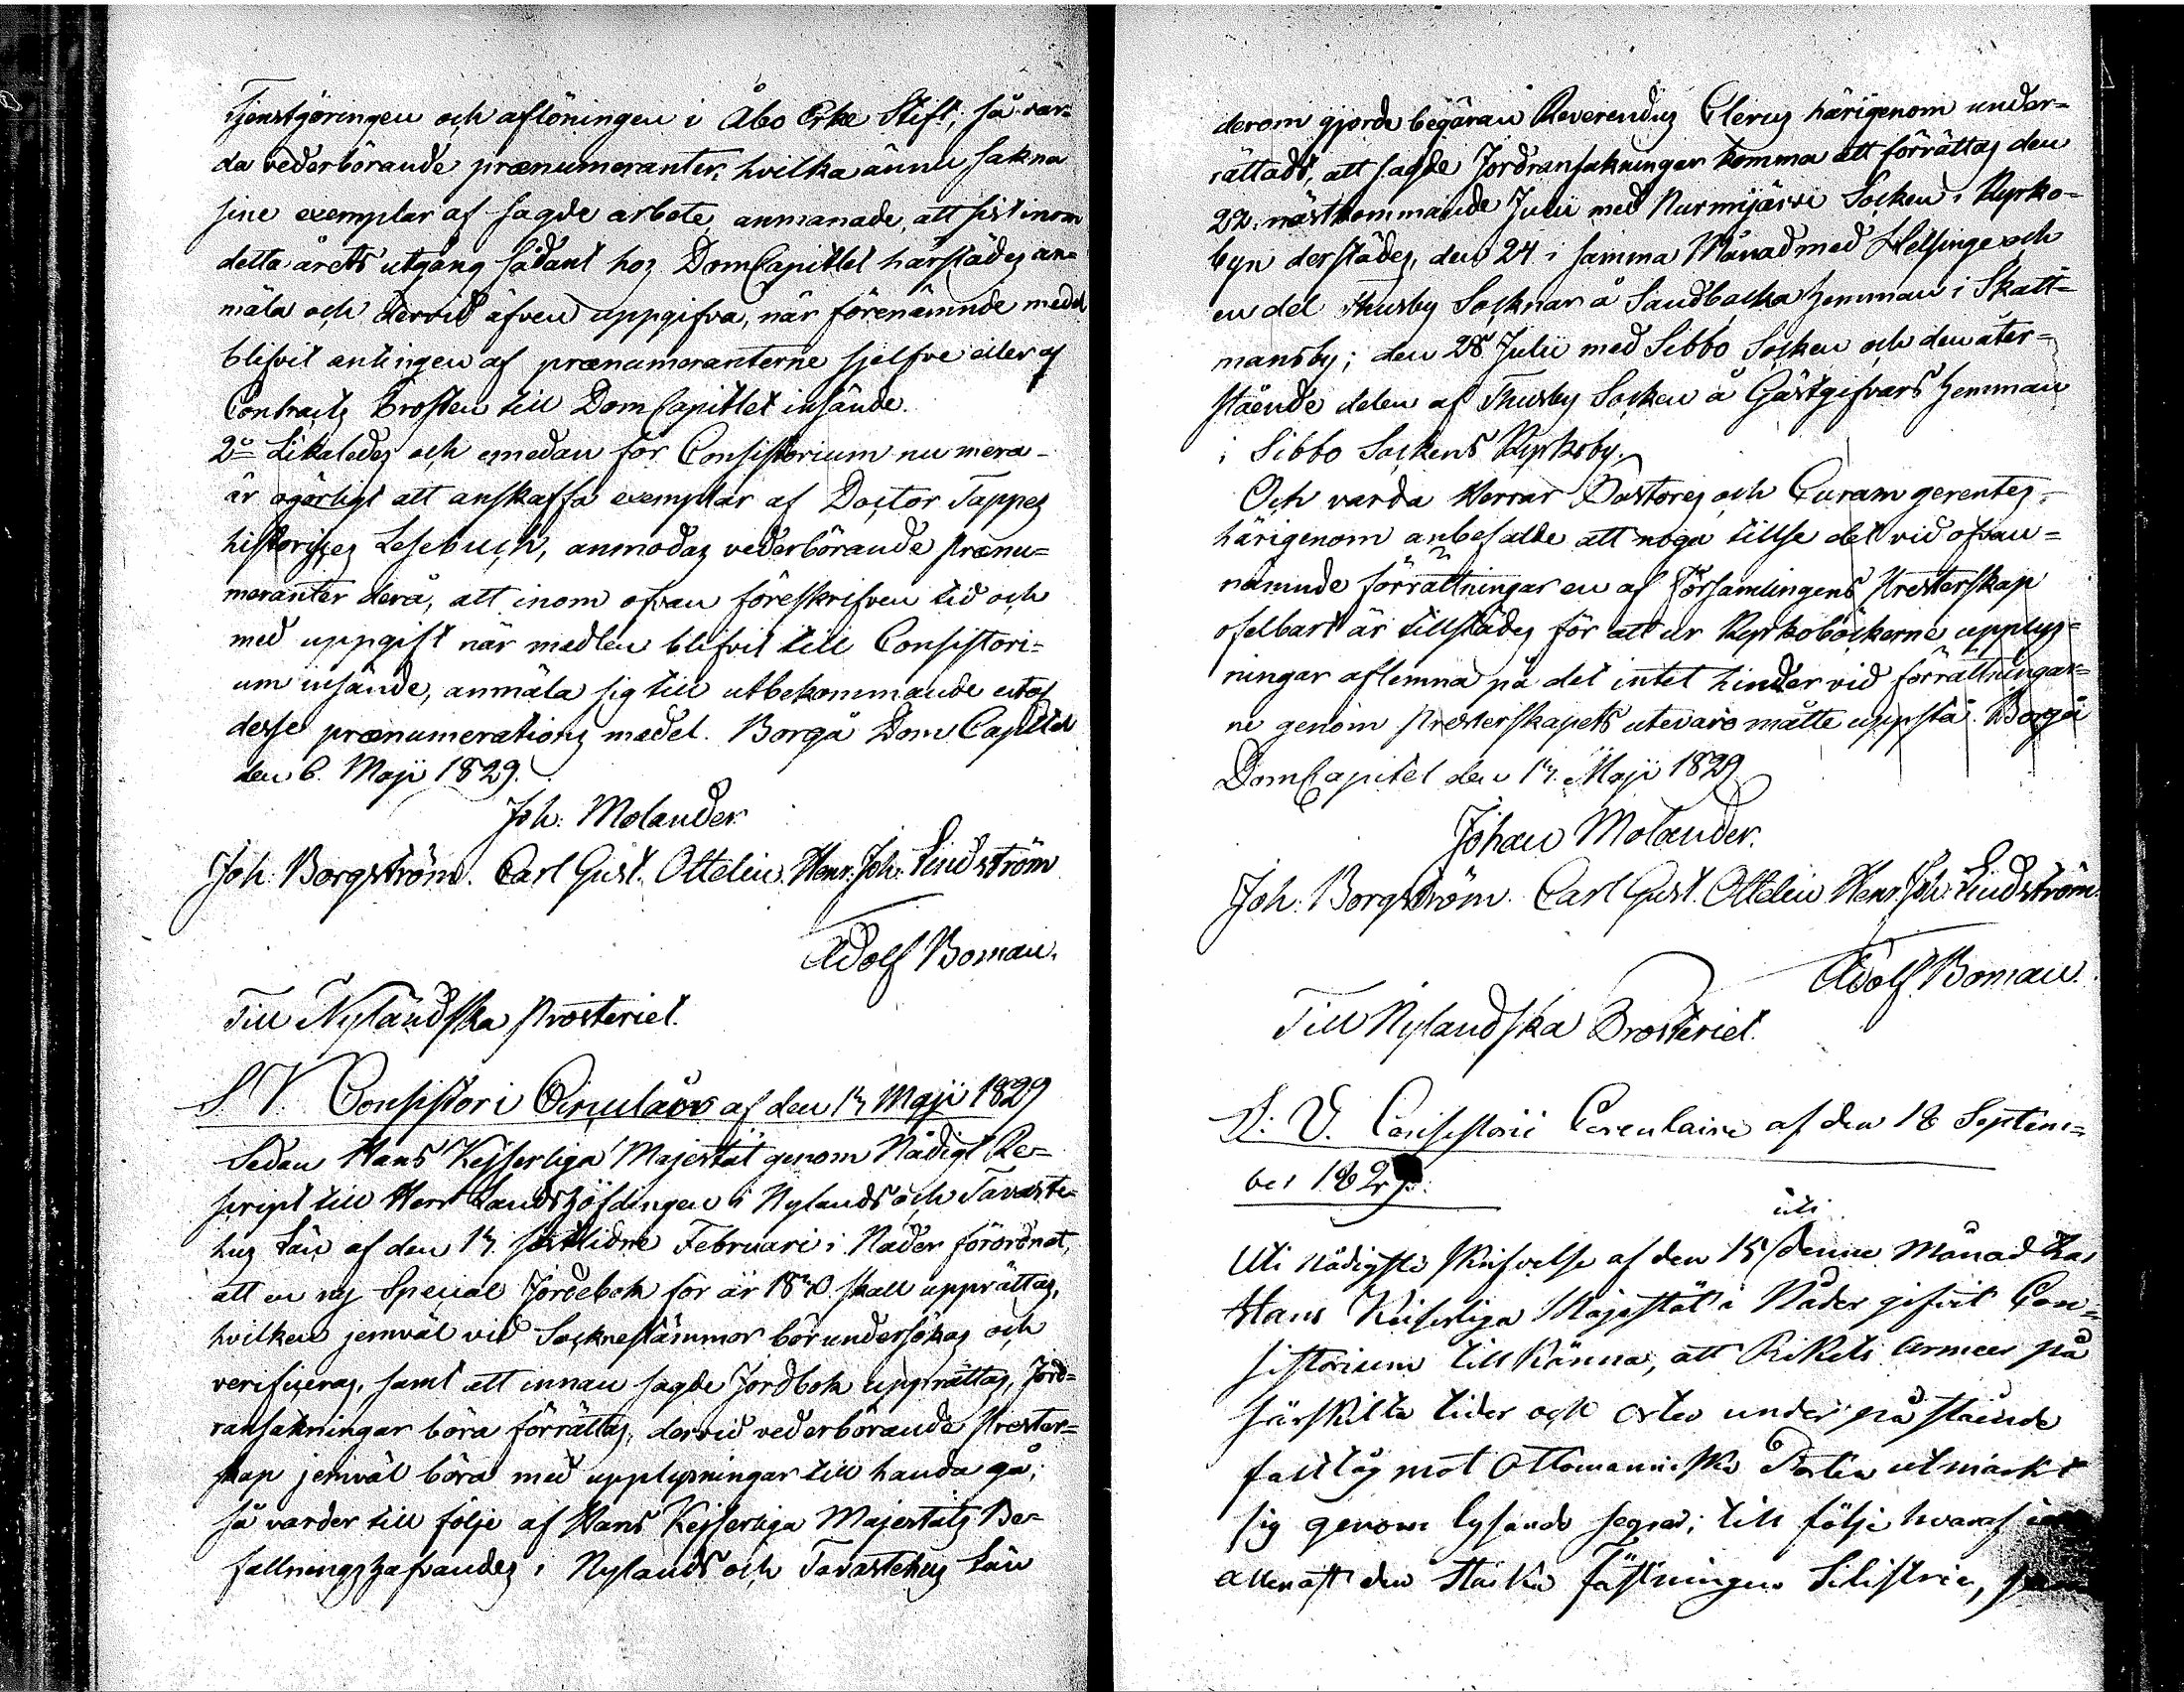 Tjenstgöringen och aflöningen i Åbo Erke Stift, så var-
da vederbörande prænumeranter, hvilka ännu sakna
sine exemplar af sagde arbete, anmanade, att sist inom
detta årets utgång sådant hos DomCapitlet härstädes an-
mäla och dervid äfven uppgifva, när förenämnde medel
blifvit antingen af prænumeranterne sjelfve eller af
Contracts Prosten till DomCapitlet insände.
2o Likaledes och emedan för Consistorium nu mera
är ogörligt att anskaffa exemplar af Doctor Tappes
historisches Lesebuch, anmodas vederbörande prænu-
meranter derå, att inom ofvan föreskrifven tid och
med uppgift när medlen blifvit till Consistori-
um insände, anmäla sig till utbekommande utaf
desse prænumerations medel. Borgå Dom Capitel
den 6. Maji 1829.
Joh: Molander
Joh: Borgström. Carl Gust. Ottelin. Henr. Joh: Lindström
Adolf Boman.
Till Nyländska Prosteriet.
S. V. Consistori Circulair af den 13 Maji 1829
Sedan Hans Kejserliga Majestät genom Nådigt Re-
script till Herr Landshöfdingen i Nylands och Tavaste-
hus Län af den 17. sistlidne Februari i Nåder förordnat,
att en ny Special Jordebok för år 1840 skall upprättas,
hvilken jemväl vid Socknestämmor bör undersökas och
verificeras, samt att innan sagde Jordbok upprättas, Jord-
ransakningar böra förrättas, dervid vederbörande Prester-
skap jemväl böra med upplysningar till handa gå;
så varder till följe af Hans Kejserliga Majestäts Be-
fallningshafvandes i Nylands och Tavastehus Län
derom gjorde begäran Reverendus Clerus härigenom under-
rättadt, att sagde Jordransakningar komma att förrättas den
22. nästkommande Julii med Nurmijärvi Socken i Kyrko-
byn derstädes, den 24 i samma Månad med Helsinge och
en del Thusby Socknar å Sandbacka hemman i Skatt-
mansby; den 28 Julii med Sibbo Socken och den åter-
stående delen af Thusby Socken å Gästgifvars hemman
i Sibbo Sockens Kyrkoby.
Och varda Herrar Pastores och Curam gerentes
härigenom anbefalde att noga tillse det vid ofvan-
nämnde förrättningar en af Församlingens Presterskap
ofelbart är tillstädes för att ur Kyrkoböckerne upplys-
ningar aflemna på det intet hinder vid förrättningar-
ne genom Presterskapets utevaro måtte uppstå. Borgå
DomCapitel den 13. Maji 1829
Johan Molander.
Joh: Borgström. Carl Gust. Ottelin Henr. Joh: Lindström.
Adolf Boman.
Till Nylandska Prosteriet.
S: V. Consistorii Circulaire af den 18 Septem-
ber 1829.
uti
Uti nådigste skrifvelse af den 15 denne månad har
Hans Keiserliga Majestät i Nåder gifvit Con-
sistorium tillkänna, att Rikets Armeer på
särskilta tider och orter under påstående
fälttåg mot Ottomanniska Porten utmärkt
sig genom lysande segrar; till följe hvaraf
allenast den starka fästningen Silistria,